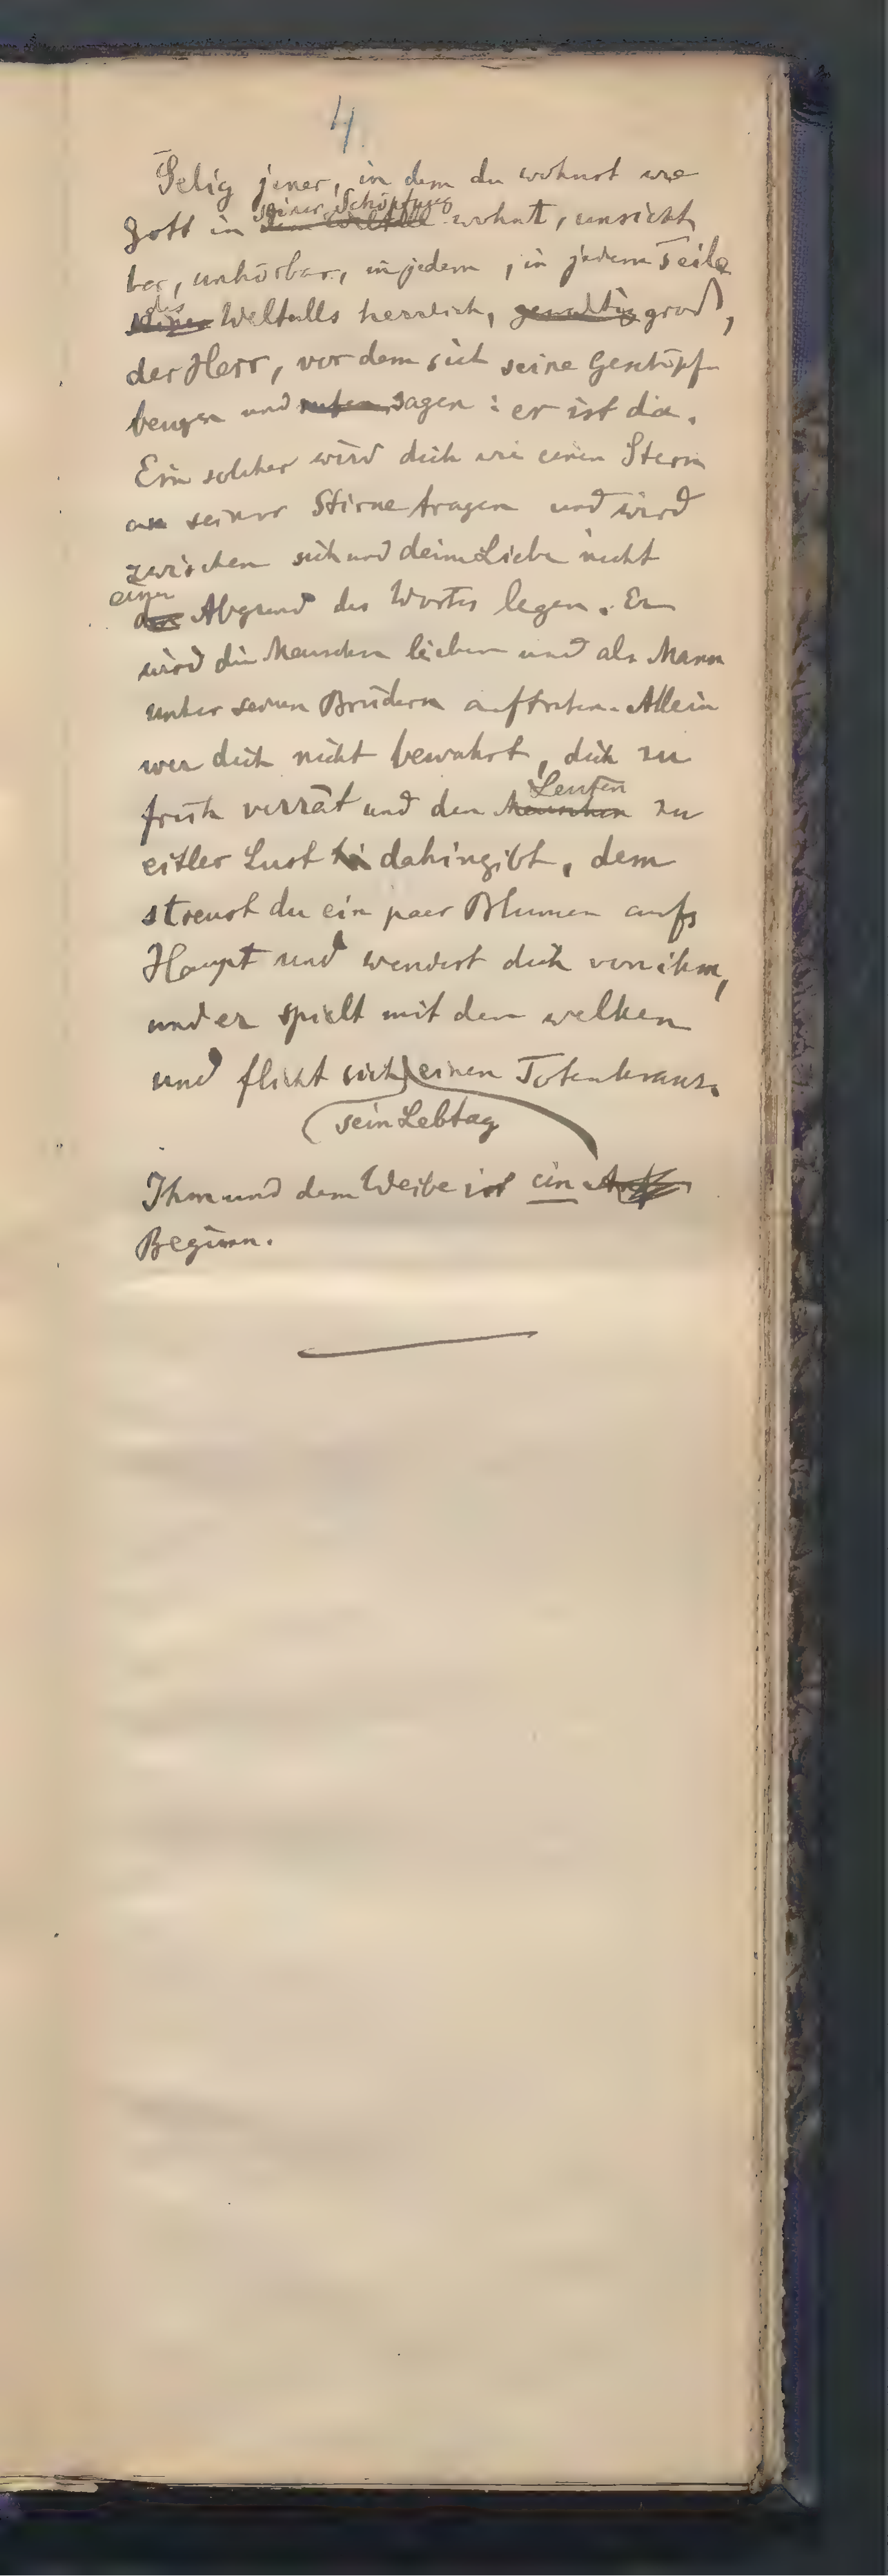 4.
Selig jener, in dem du wohnst wie
Gott in seiner Schöpfung wohnt, unsicht
bar, unhörbar, in jedem, in jedem Teile
des Weltalls herrlich, gewaltig groß,
der Herr, vor dem sich seine Geschöpfe
beugen und rufen sagen: er ist da.
Ein solcher wird dich wie einen Stern
an seiner Stirne tragen und wird
zwischen sich und deine Liebe nicht
einen
Abgrund des Wortes legen. Er
wird die Menschen lieben und als Mann
unter seinen Brüdern auftreten. Allein
wer dich nicht bewahrt, dich zu
Leuten
früh verrät und den Menschen zu
eitler Lust hi dahingibt, dem
streust du ein paar Blumen aufs
Haupt und wendest dich von ihm,
und er spielt mit den welken
und flicht sich einen Totenkranz.
sein Lebtag
Ihm und dem Weibe ist ein
Beginn.